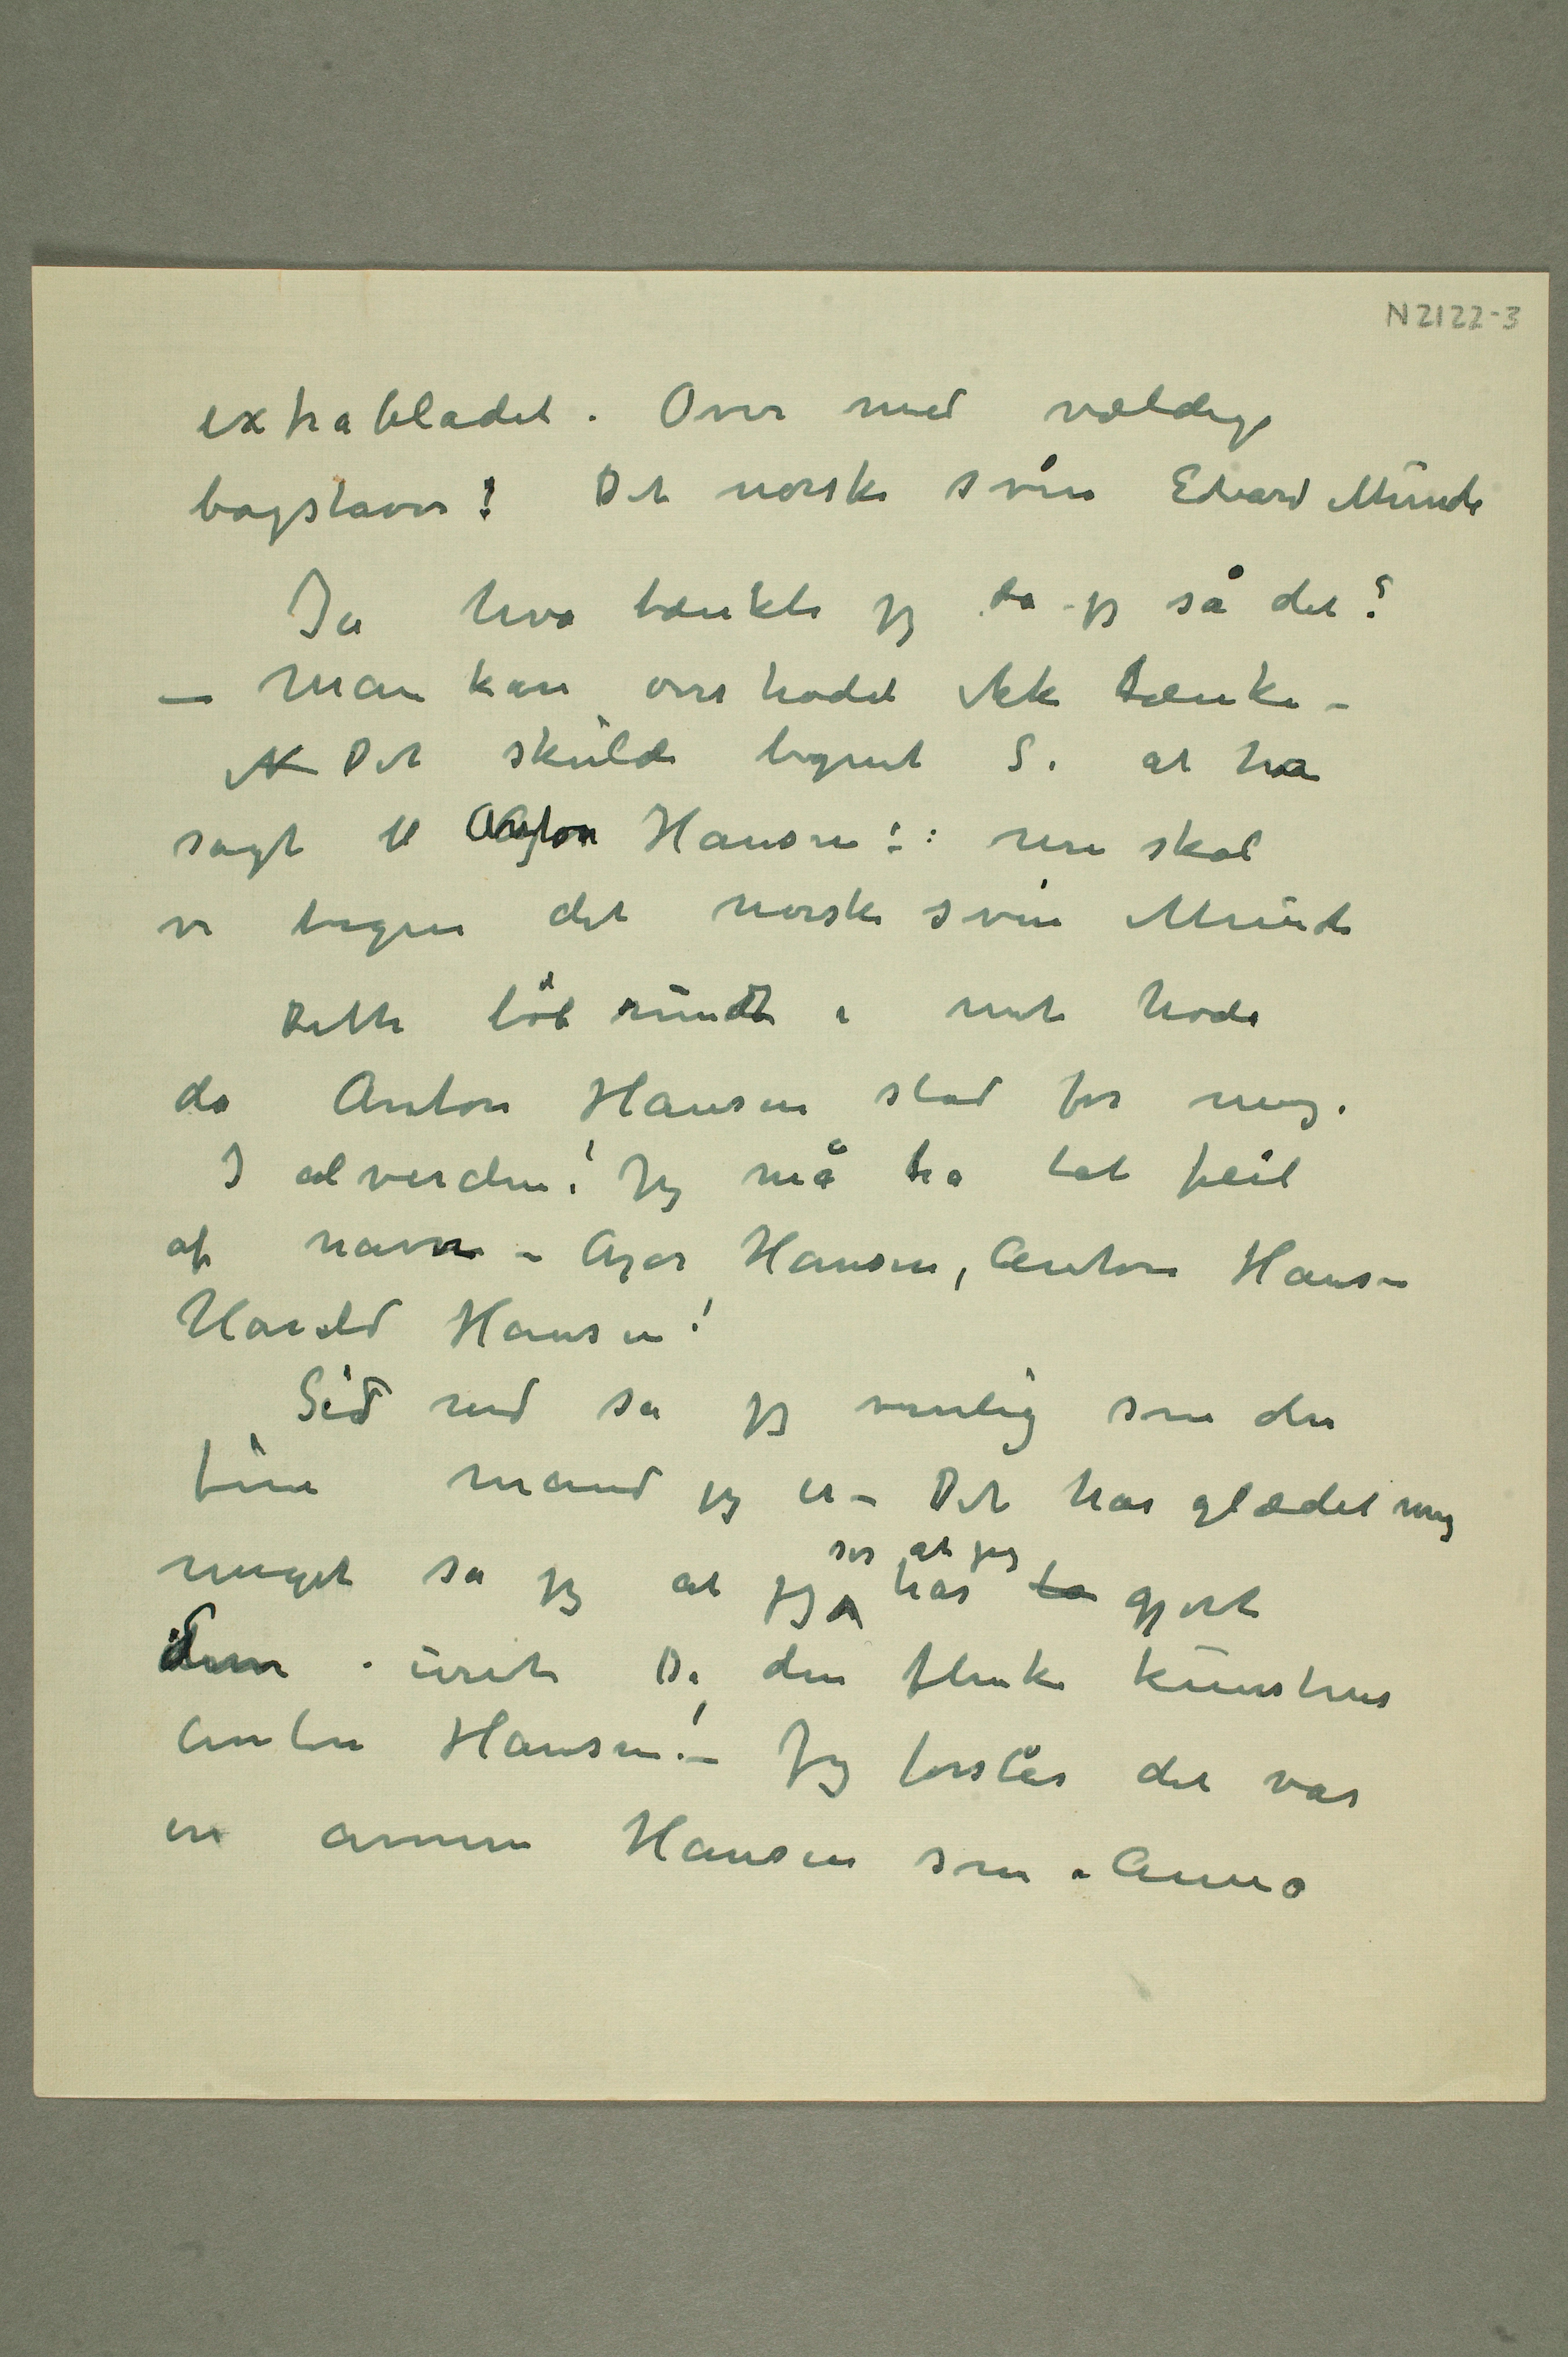 N 2122-3
extrabladet. Over med vældige
bogstaver! Det norske svin Edvard Munch
Ja hva tænkte jeg da jeg så det?
– Man kan overhodet ikke tænke –
Det skulde begynt S. at ha
sagt til Anton Hansen!: nu skal
vi begynne det norske svin Munch
Dette løb rundt i mit hode
da Anton Hansen stod for meg.
I alverden! Jeg må ha tat feil
af navn – Hansen, Anton Hansen
Harald Hansen!
Sid ned sa jeg venlig som den
fine mand jeg er – Det har glædet mig
meget sa jeg at jeg
ser at jeg
har gjort
Dem uret De den flinke kunstner
Anton Hansen! – Jeg forstår det var
en annen Hansen som